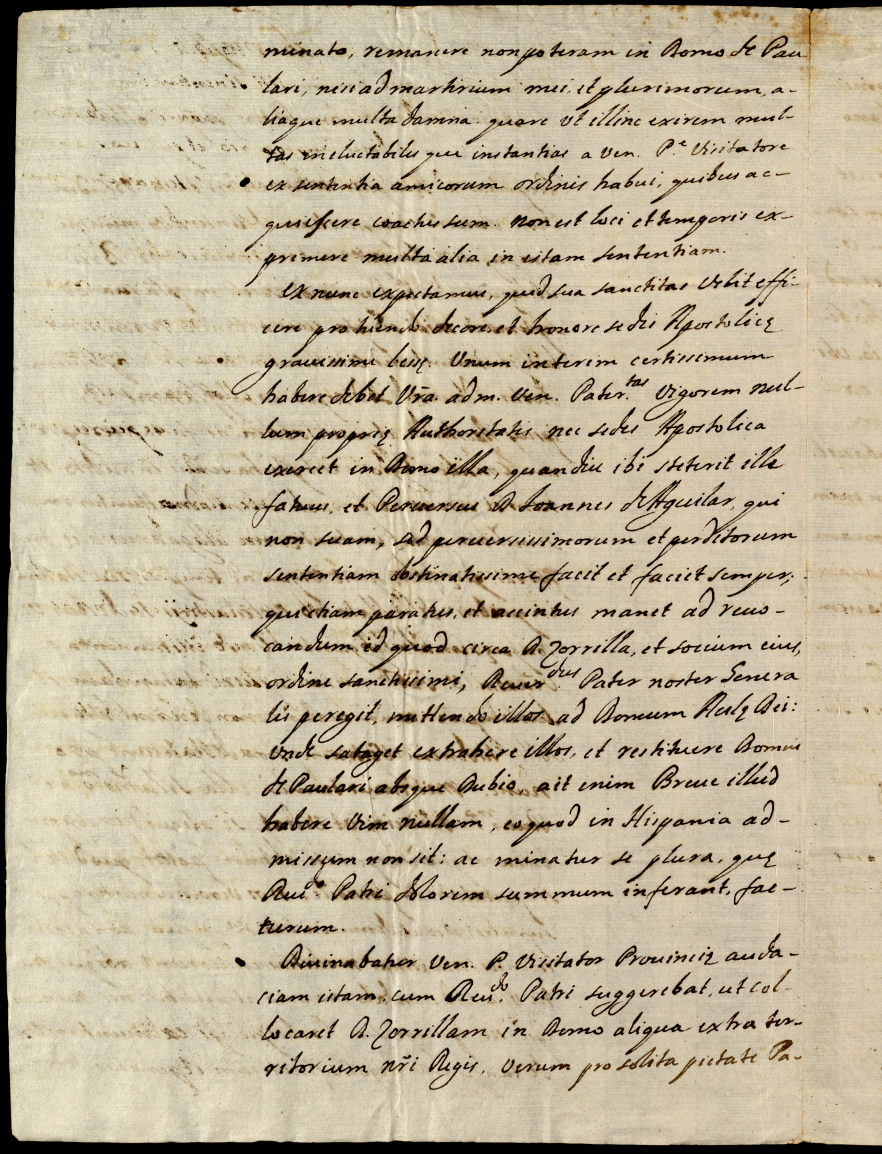 minato, remanere non poteram in Domo de Pau
lari, nisi ad martirium mei, et plurimorum, a-
liaque multa damna. quare vt illinc exirem mul-
tas ineluctabilesque instantias a Ven. P.e Visitatore
ex sententia amicorum ordinis habui, quibus ac-
quiescere coactus sum. non est loci et temporis ex-
primere multa alia in istam sententiam.
Ex nunc expectamus, quod sua sanctitas velit effi-
cere pro tuendo decore, et honore sedis Apostolicę
grauissimi. Unum interim certissimum
habere debet Vrã. adm. Ven. Pater.tas vigorem nul-
lum proprię Authoritatis nec sedis Apostolica
exercet in Domo illa, quandiu ibi steterit ille
fatuus, et Peruersus D. Joannes de Aguilar, qui
non suam, sed peruersissimorum et perditorum
sententiam obstinatissime facit et faciet semper;
qui etiam paratus, et accintus manet ad reuo-
candum id quod circa D. Zorrilla, et socium eius,
ordine sanctissimi, Reuerdus. Pater noster Genera
lis peregit, mittendo illos ad Domum Aulę Dei:
vnde sataget extrahere illos, et restituere Domui
de Paulari absque Dubio, ait enim Breue illud
habere vim nullam, eo quod in Hispania ad-
missum non sit: ac minatur se plura, quę
Reu.do Patri dolorem summum inferant, fac-
turum.
Diuinabatur Ven. P. Visitator Prouincię auda-
ciam istam, cum Reu.do Patri suggerebat, ut col-
locaret D. Zorrillam in Domo aliqua extra ter-
ritorium nr̃i Regis. Verum pro solita pietate Pa-